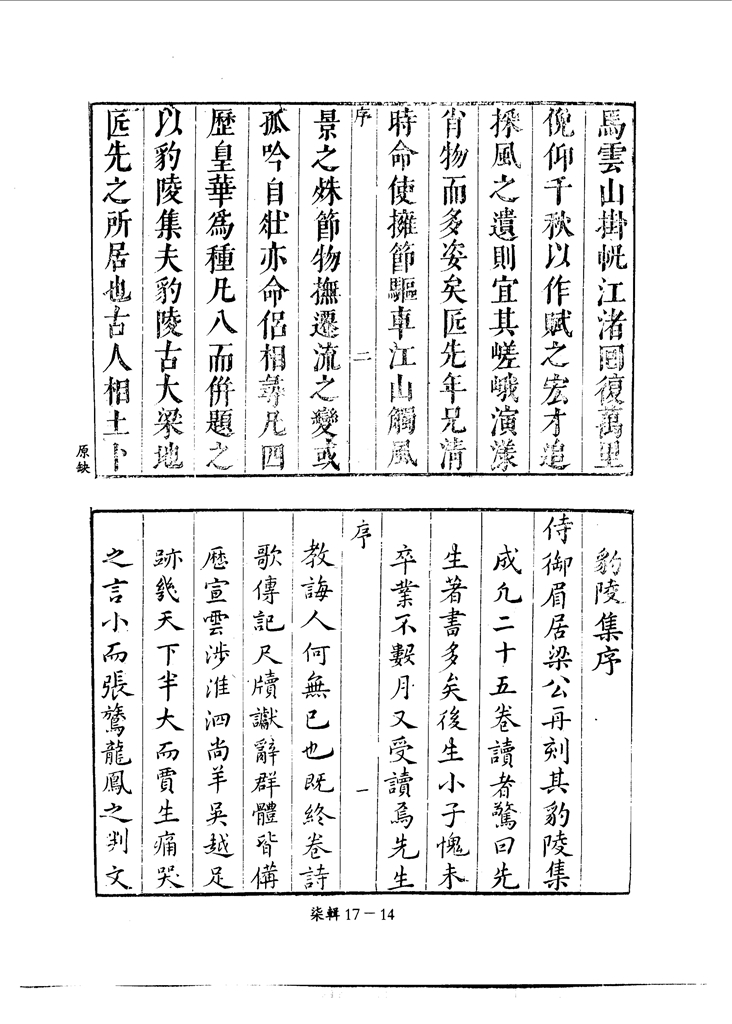 馬雲山掛帆江渚回復萬里
俛仰千秋以作賦之宏才追
採風之遺則宜其嵯峨演漾
肖物而多姿矣匠先年兄清
時命使擁節驅車江山觸風
序
二
景之殊節物撫遷流之變或
孤吟自壯亦命侶相尋凡四
歷皇華為種凡八而併題之
以豹陵集夫豹陵古大梁地
匠先之所居也古人相土卜
原缺
豹陵集序
侍御眉居梁公再刻其豹陵集
成凢二十五卷讀者驚曰先
生著書多矣後生小子愧未
卒業不數月又受讀焉先生
序
一
教誨人何無已也既終卷詩
歌傳記尺牘讞辭群體皆備
歷宣雲涉淮泗尚羊吳越足
跡幾天下半大而賈生痛哭
之言小而張鷟龍鳳之判文
柒輯 17－14